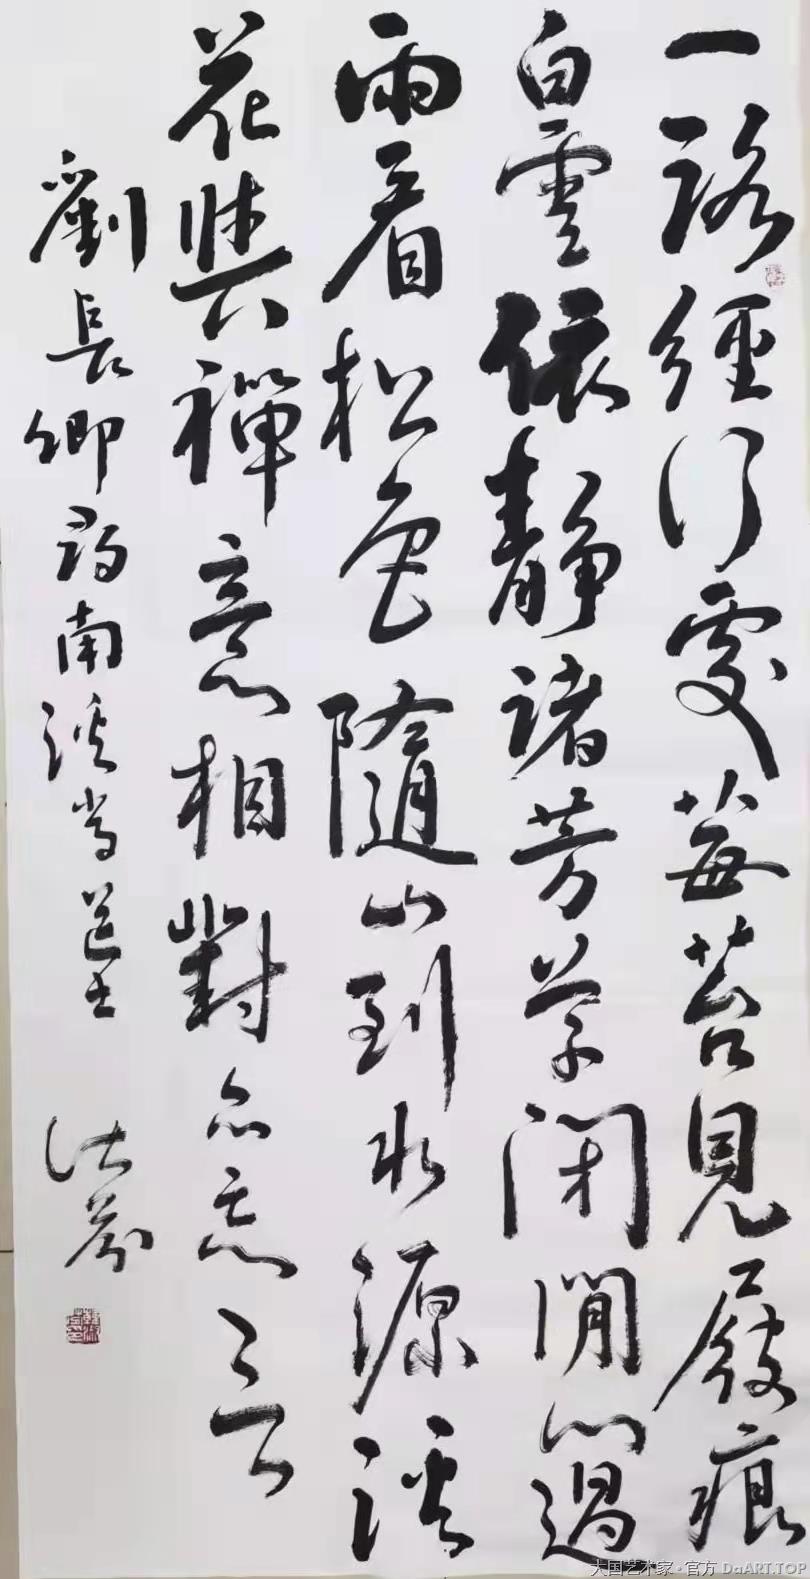 一路經行處莓苔見履痕
白雲依靜渚芳草閉閒門過
雨看松色隨山到水源溪
花與禪意相對亦忘言
劉長卿尋南溪常道士
大国艺术家·官方 DaART.TOP